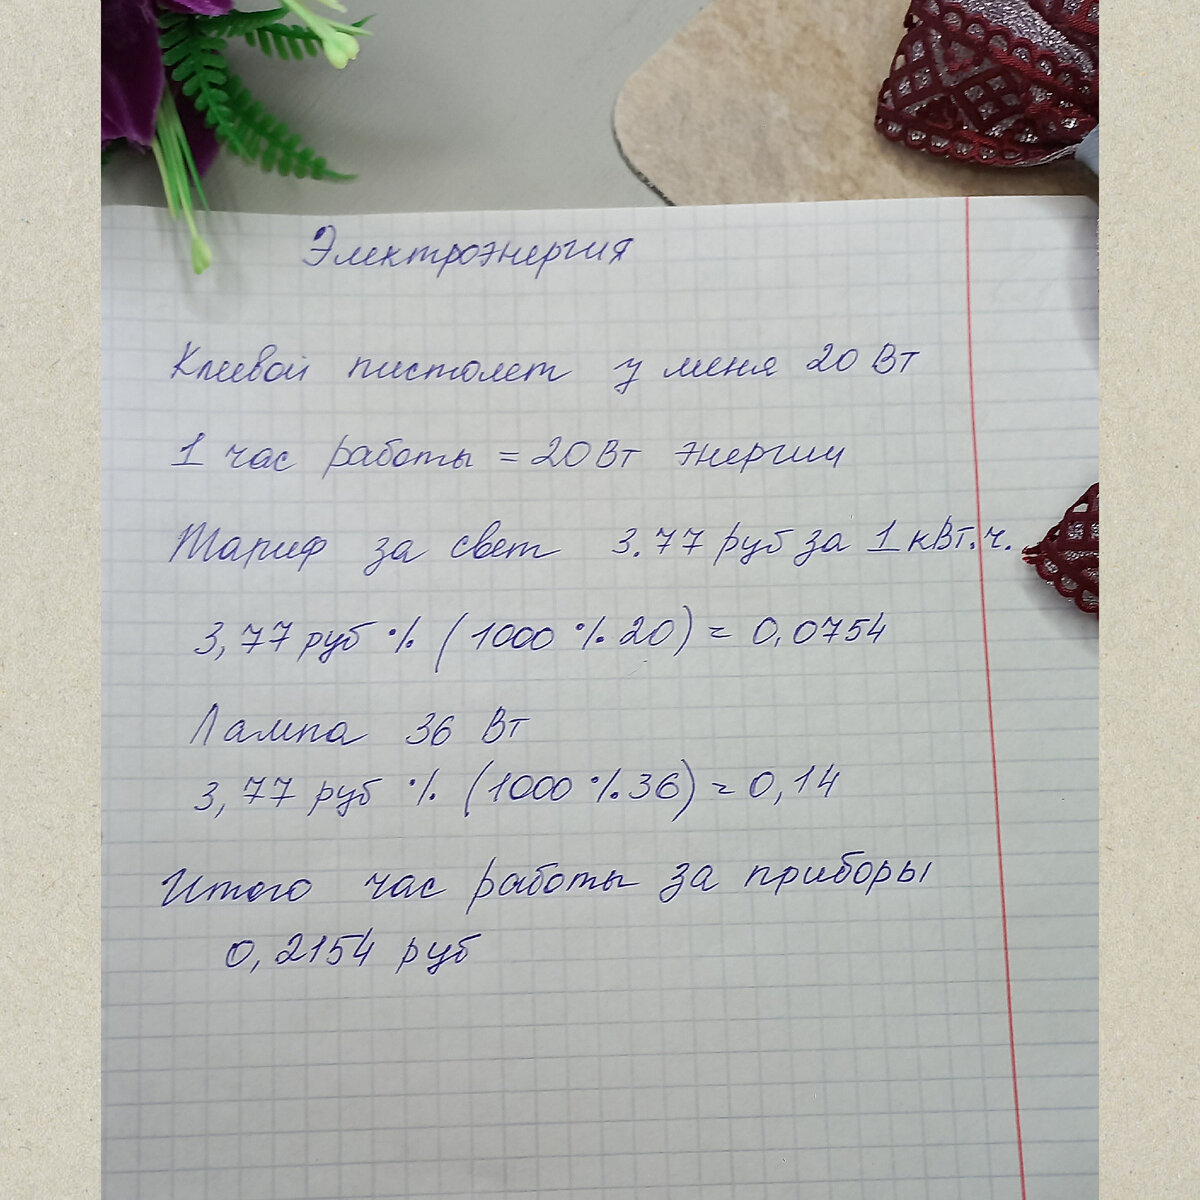 Электроэнергия
Клеевой пистолет у меня 20 Вт
1 час работы = 20 Вт энергии
Тариф за свет 3.77 руб за 1 кВт.ч.
3,77 руб % (1000 % 20) = 0,0754
Лампа 36 Вт
3,77 руб % (1000 % 36) = 0,14
Итого час работы за приборы
0,2154 руб